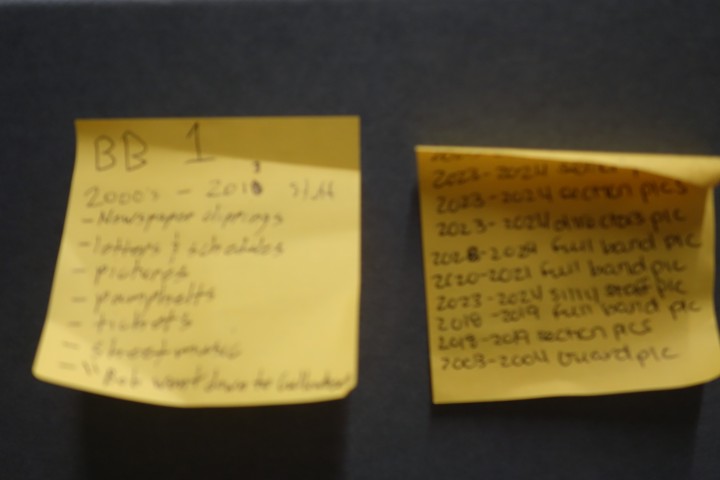 BB 1
2000's - 2018 stuff
- Newspaper clippings
- letters & schedules
- pictures
- pamphelts
- tickets
- sheet music
2023-2024
2023-2024 section pics
2023-2024 directors pic
2023-2024 full band pic
2020-2021 full band pic
2023-2024 silly staff pic
2018-2019 full band pic
2018-2019 section pics
2003-2004 Guard pic